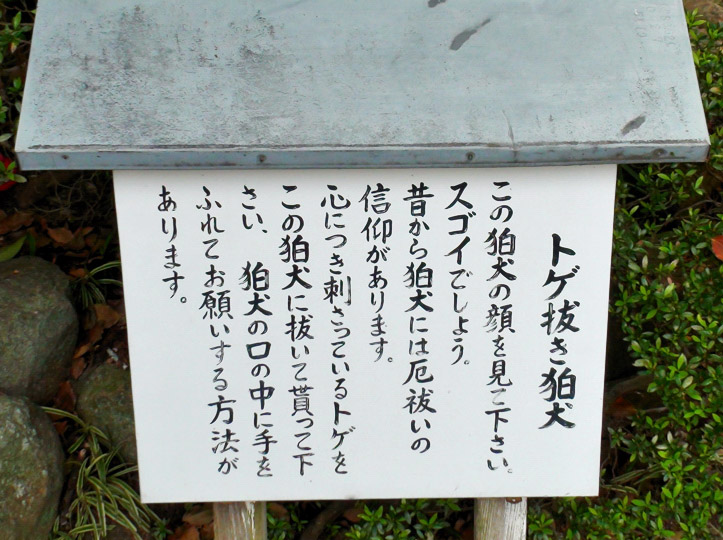 トゲ抜き狛犬
この狛犬の顔を見て下さい。
スゴイでしょう。
昔から狛犬には厄祓いの
信仰があります。
心につき刺さっているトゲを
この狛犬に抜いて貰って下
さい、狛犬の口の中に手を
ふれてお願いする方法が
あります。